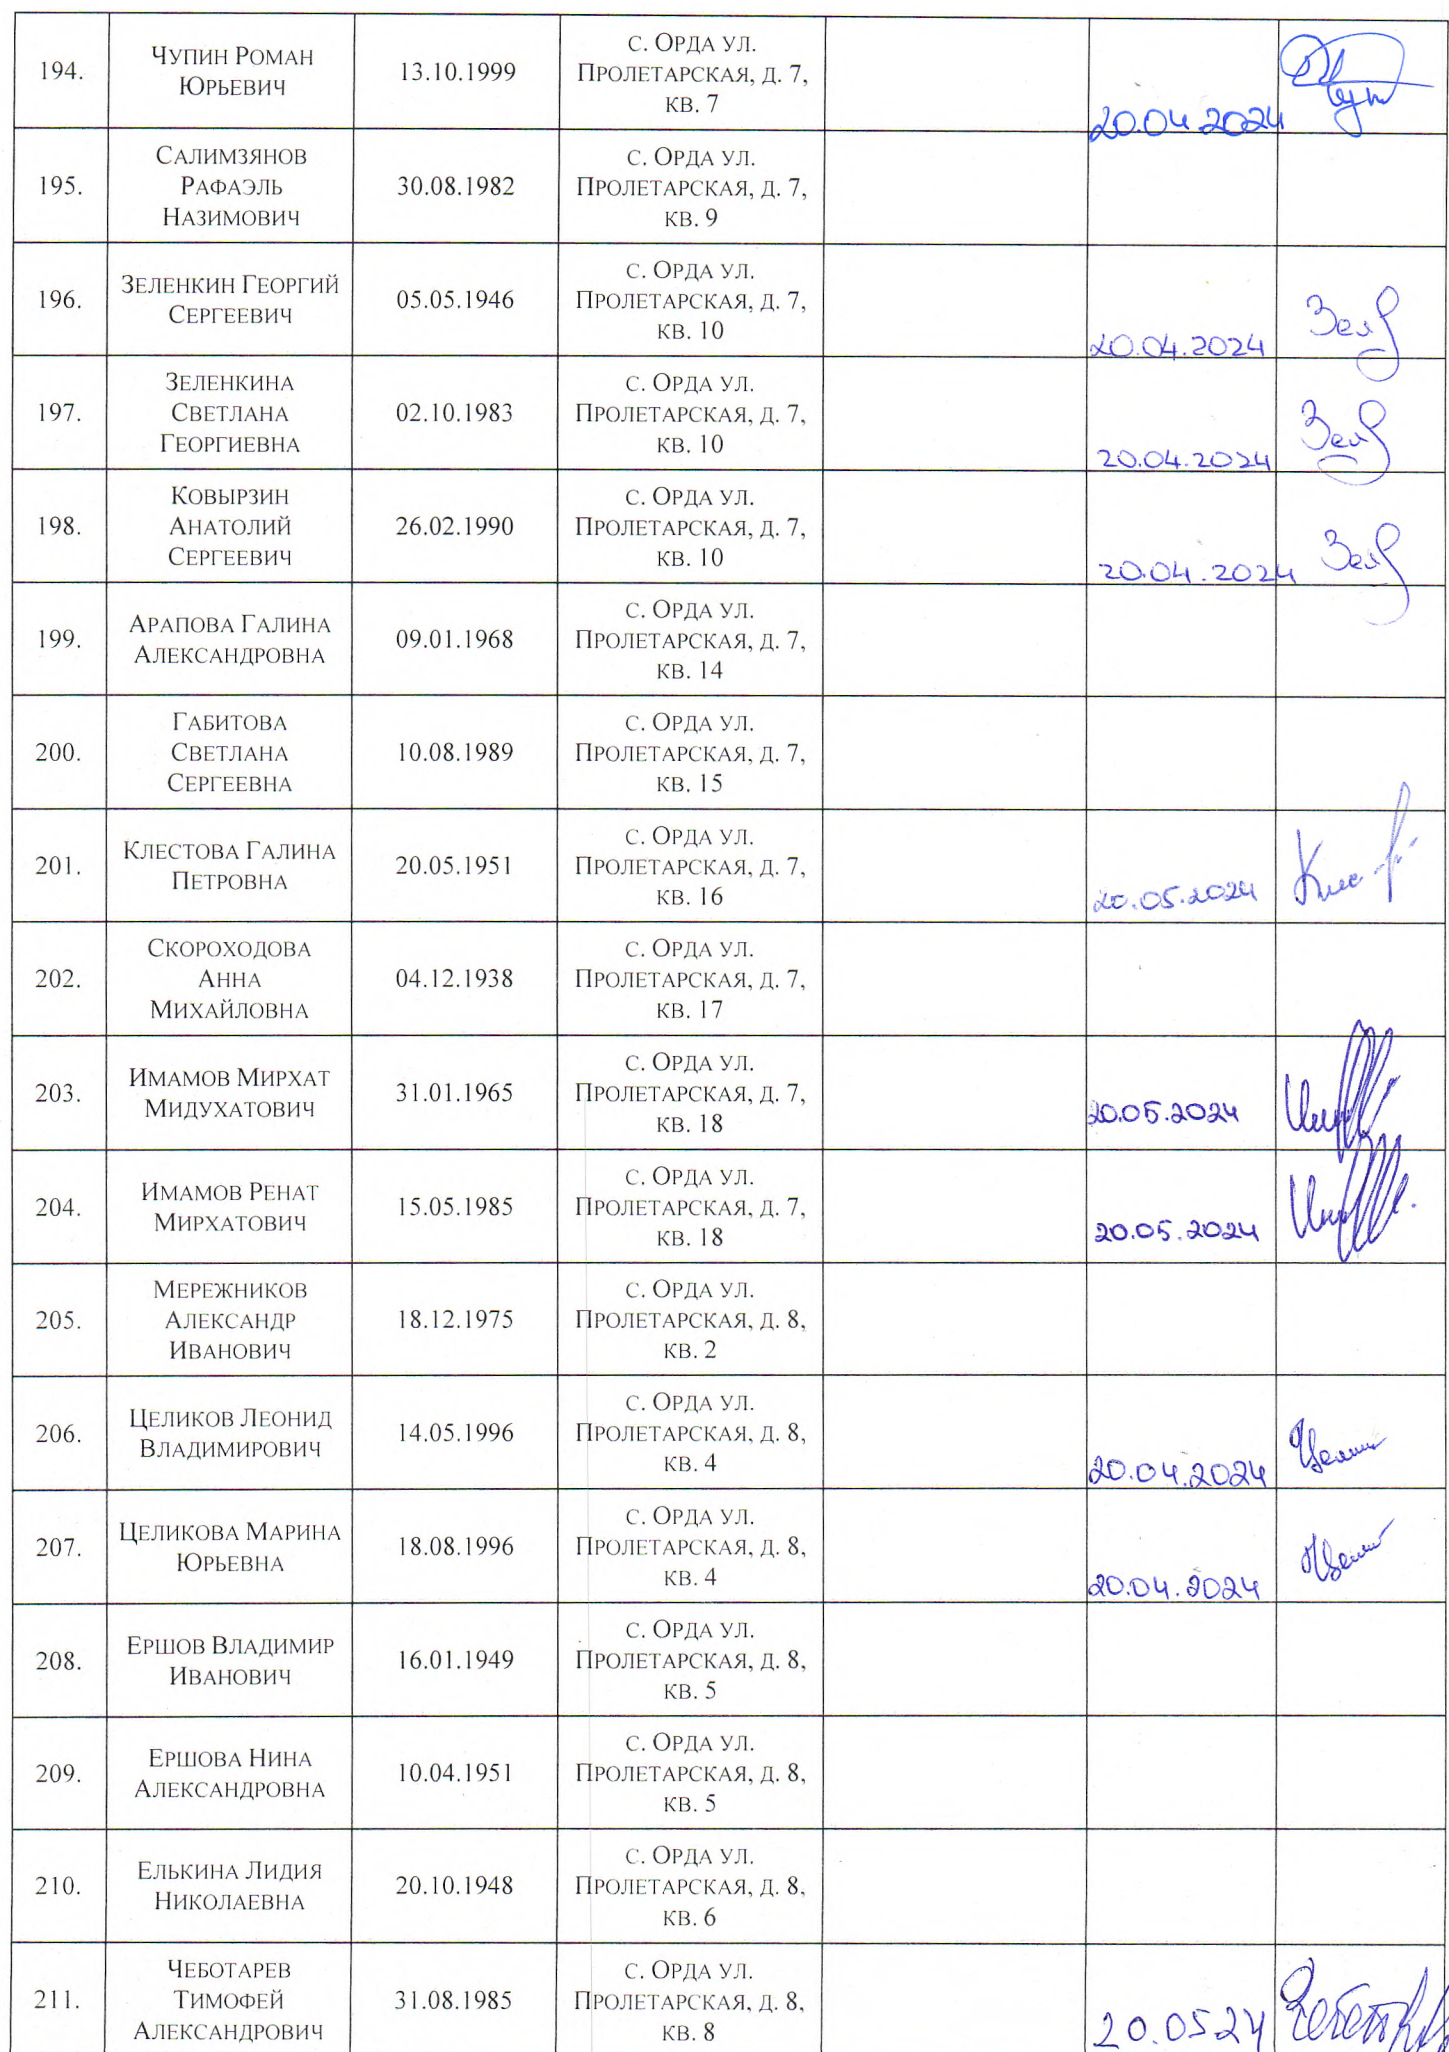 194.
Чупин Роман
Юрьевич
13.10.1999
с. Орда ул.
Пролетарская, д. 7,
кв. 7
20.04 2024
195.
Салимзянов
Рафаэль
Назимович
30.08.1982
с. Орда ул.
Пролетарская, д. 7,
кв. 9
196.
Зеленкин Георгий
Сергеевич
05.05.1946
с. Орда ул.
Пролетарская, д. 7,
кв. 10
20.04.2024
197.
Зеленкина
Светлана
Георгиевна
02.10.1983
с. Орда ул.
Пролетарская, д. 7,
кв. 10
20.04.2024
198.
Ковырзин
Анатолий
Сергеевич
26.02.1990
с. Орда ул.
Пролетарская, д. 7,
кв. 10
20.04.2024
199.
Арапова Галина
Александровна
09.01.1968
с. Орда ул.
Пролетарская, д. 7,
кв. 14
200.
Габитова
Светлана
Сергеевна
10.08.1989
с. Орда ул.
Пролетарская, д. 7,
кв. 15
201.
Клестова Галина
Петровна
20.05.1951
с. Орда ул.
Пролетарская, д. 7,
кв. 16
20.05.2024
202.
Скороходова
Анна
Михайловна
04.12.1938
с. Орда ул.
Пролетарская, д. 7,
кв. 17
203.
Имамов Мирхат
Мидухатович
31.01.1965
с. Орда ул.
Пролетарская, д. 7,
кв. 18
20.05.2024
204.
Имамов Ренат
Мирхатович
15.05.1985
с. Орда ул.
Пролетарская, д. 7,
кв. 18
20.05.2024
205.
Мережников
Александр
Иванович
18.12.1975
с. Орда ул.
Пролетарская, д. 8,
кв. 2
206.
Целиков Леонид
Владимирович
14.05.1996
с. Орда ул.
Пролетарская, д. 8,
кв. 4
20.04.2024
207.
Целикова Марина
Юрьевна
18.08.1996
с. Орда ул.
Пролетарская, д. 8,
кв. 4
20.04.2024
208.
Ершов Владимир
Иванович
16.01.1949
с. Орда ул.
Пролетарская, д. 8,
кв. 5
209.
Ершова Нина
Александровна
10.04.1951
с. Орда ул.
Пролетарская, д. 8,
кв. 5
210.
Елькина Лидия
Николаевна
20.10.1948
с. Орда ул.
Пролетарская, д. 8,
кв. 6
211.
Чеботарев
Тимофей
Александрович
31.08.1985
с. Орда ул.
Пролетарская, д. 8,
кв. 8
20.0524